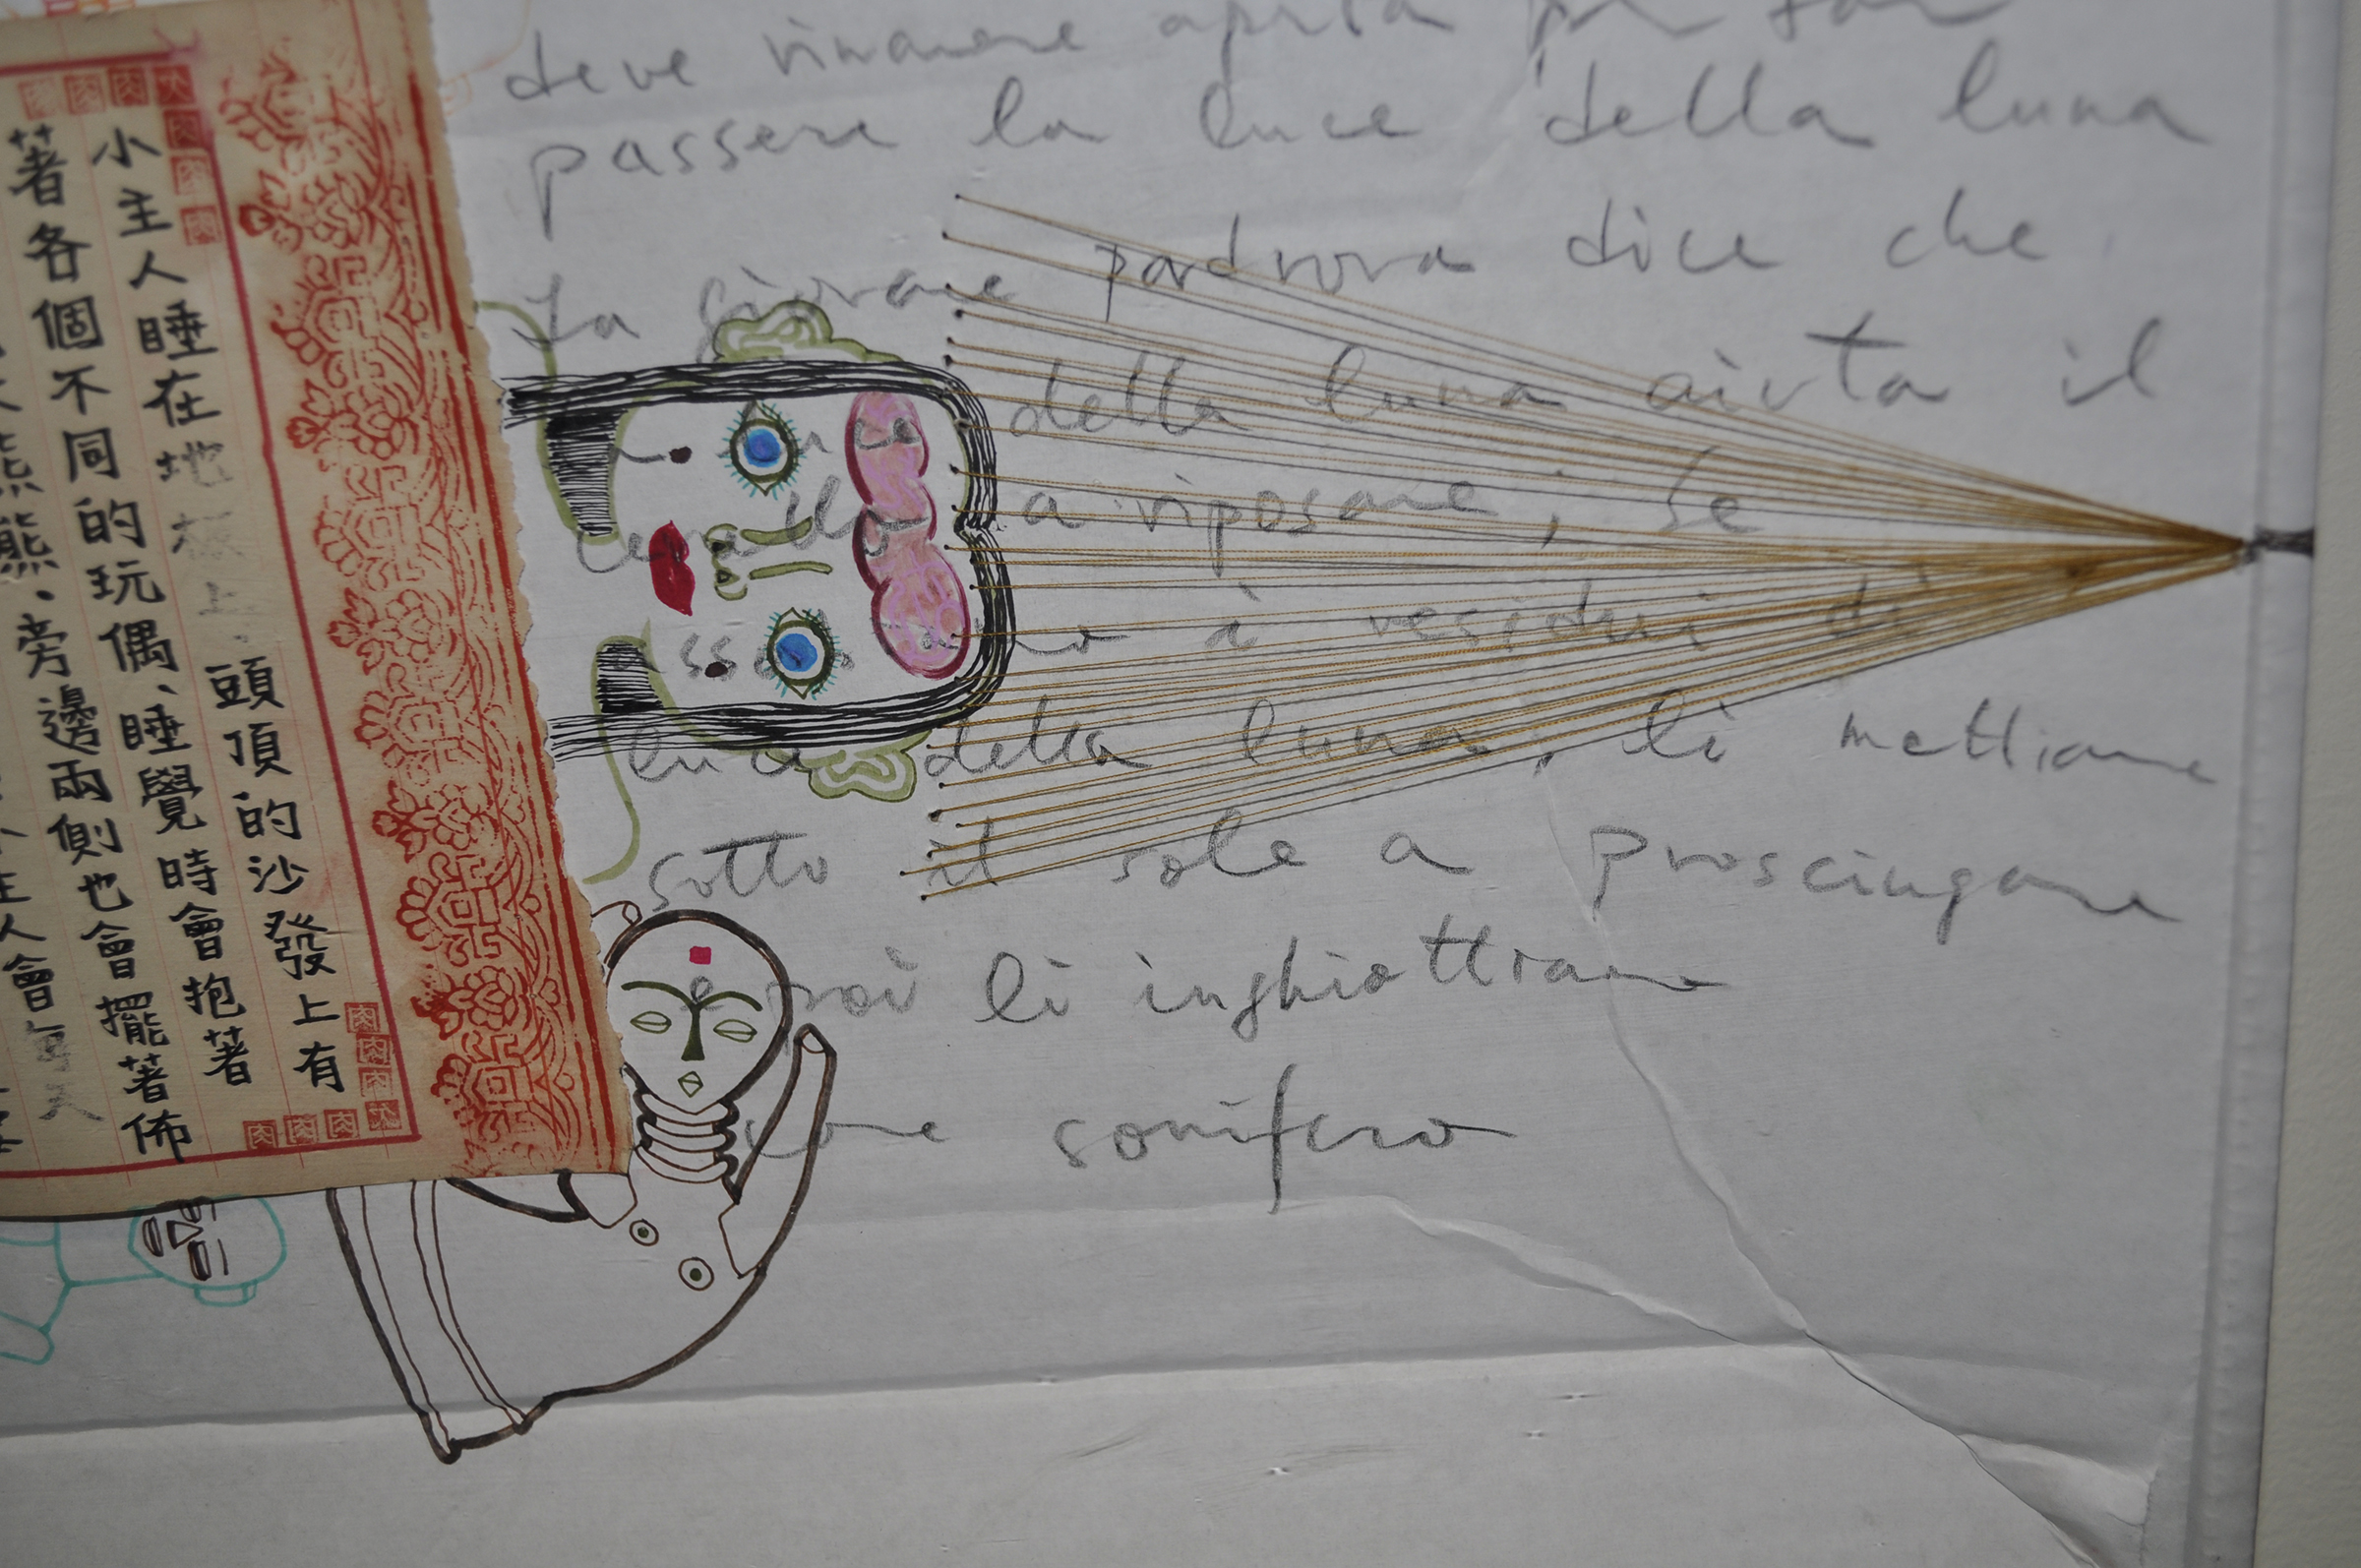 小主人睡在地板上、頭頂的沙發上有
著各個不同的玩偶、睡覺時會抱著
大熊熊、旁邊兩側也會擺著佈
主人會每天
deve rimanere aperta per far
passere la luce della luna
La giovane padrona dice che
la luce della luna aiuta il
cervello a riposare, Se
i residui di
luce della luna, li mettiamo
sotto il sole a prosciugare
e poi li inghiottiamo
come sonifero